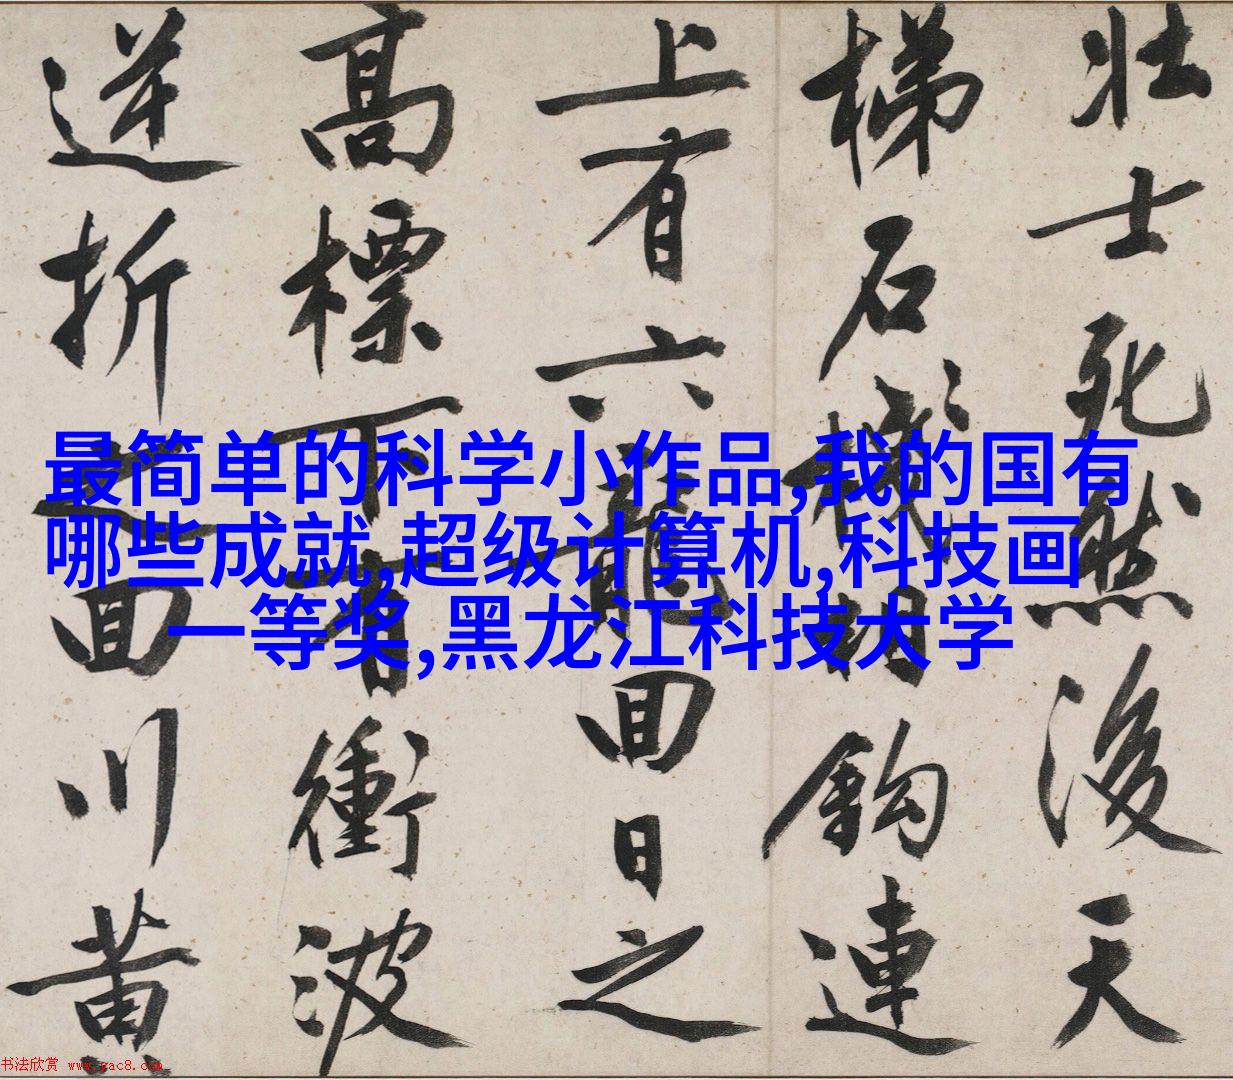 壮士死然後天
梯石棧相鈎連
上有六龍回日之
高標下有衝波
逆折之回川黄
最简单的科学小作品,我的国有
哪些成就,超级计算机,科技画
一等奖,黑龙江科技大学
书法欣赏 www.yac8.com